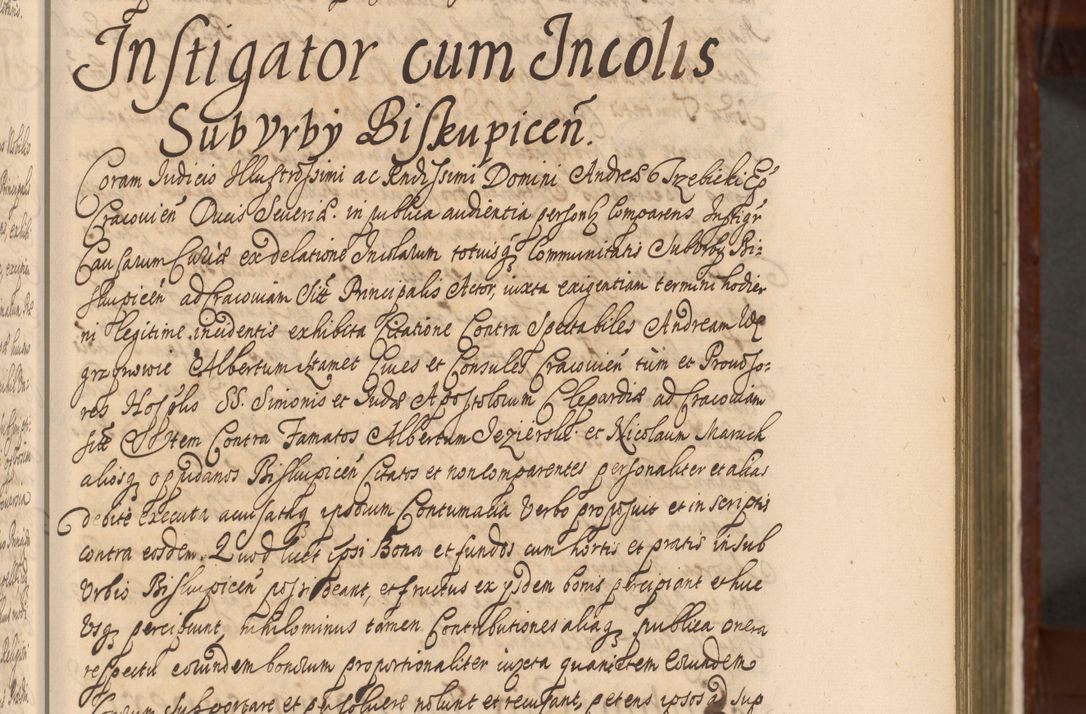 Instigator cum Incolis
SubUrby Biskupiceñ.
Coram Judicio Illustrissimi ac Rndissimi Domini Andreæ Trzebicki Ep
Cracovieñ Ducis Severiæ. in publica audientia personlr Comparens Instigr
Causarum Curiæ ex delatione Incolarum totiusq Communitatis SubUrby Bi-
skupiceñ ad Cracoviam Sitæ Principalis Actor, iuxta exigentiam termini hodier
ni legitime incidentis exhibita Citatione Contra Spectabiles Andream
Albertum Cives et Consules Cracovieñ tum et Proviso-
res Hosplis SS. Simonis et Judæ Apostolorum Clepardiæ ad Cracoviam
sitæ Item Contra Famatos Albertum Jezierski et Nicolaum Maruck
aliosq oppidanos Biskupiceñ Citatos et non comparentes personaliter et alias
debite executa accusataq ipsorum Contumacia Verbo proposuit et in scriptis
contra eosdem. Quod licet ipsi Bona et fundos cum hortis et pratis in sub
Urbio Biskupiceñ possideant, et fructus ex ysdem bonis percipiant et huc
Usq percipiunt, nihilominus tamen Contributiones aliaq publica onera
respectu eorundem bonorum proportionaliter iuxta quantitatem eorundem
bonorum supportare et persolvere nolunt et recusant, petens ipsos ad sup